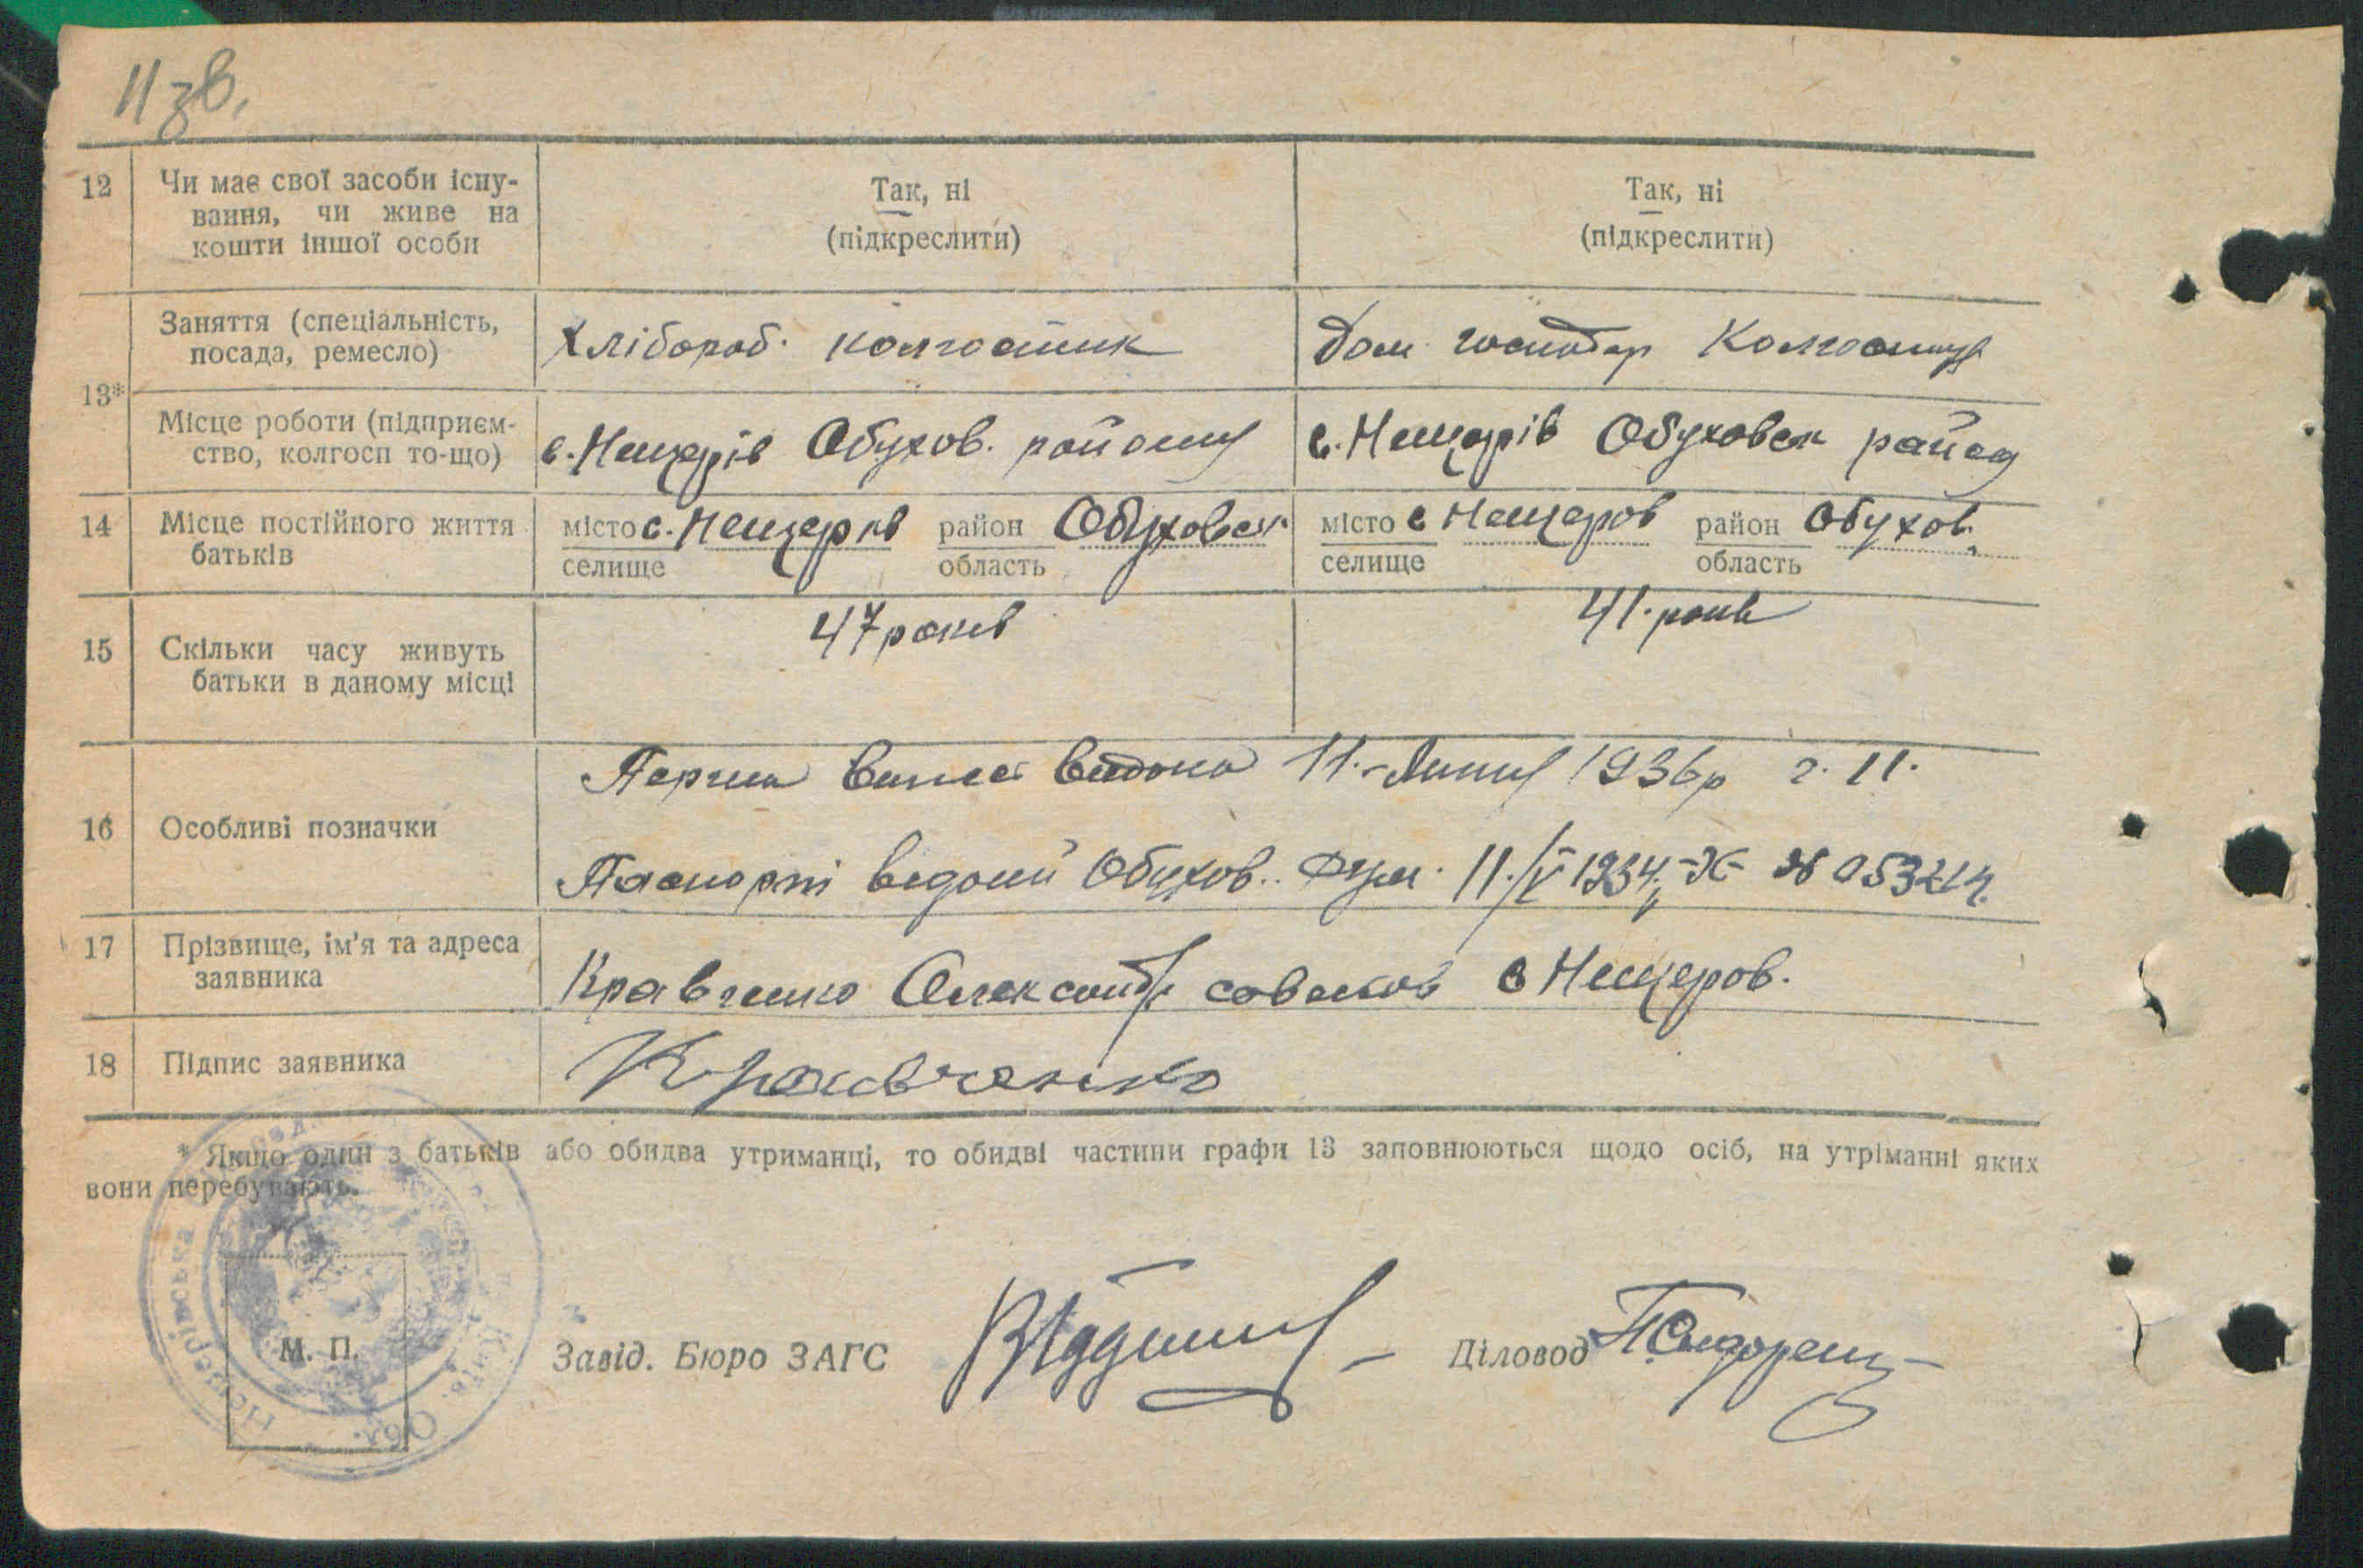 11 зв.
12 Чи має свої засоби існу-
вання, чи живе на
кошти іншої особи
Так, ні
(підкреслити)
Так, ні
(підкреслити)
13*
Заняття (спеціальність,
посада, ремесло)
Хлібороб. колгоспник
Дом господар Колгоспниця
Місце роботи (підприєм-
ство, колгосп то-що)
с. Нещерів Обухов. району
с. Нещерів Обуховськ
14 Місце постійного життя
батьків
місто с. Нещерів район Обуховськ
селище область
місто с Нещеров район Обухов.
селище область
15 Скільки часу живуть
батьки в даному місці
47 років
41. років
16 Особливі позначки
11. 1936 р 11.
Обухов. 11./V 1934
17 Прізвище, ім'я та адреса
заявника
Кравченко Олександр с Нещеров.
18 Підпис заявника
Кравченко
* Якщо один з батьків або обидва утриманці, то обидві частини графи 13 заповнюються щодо осіб, на утріманні яких
вони перебувають.
М. П.
Завід. Бюро ЗАГС
Діловод